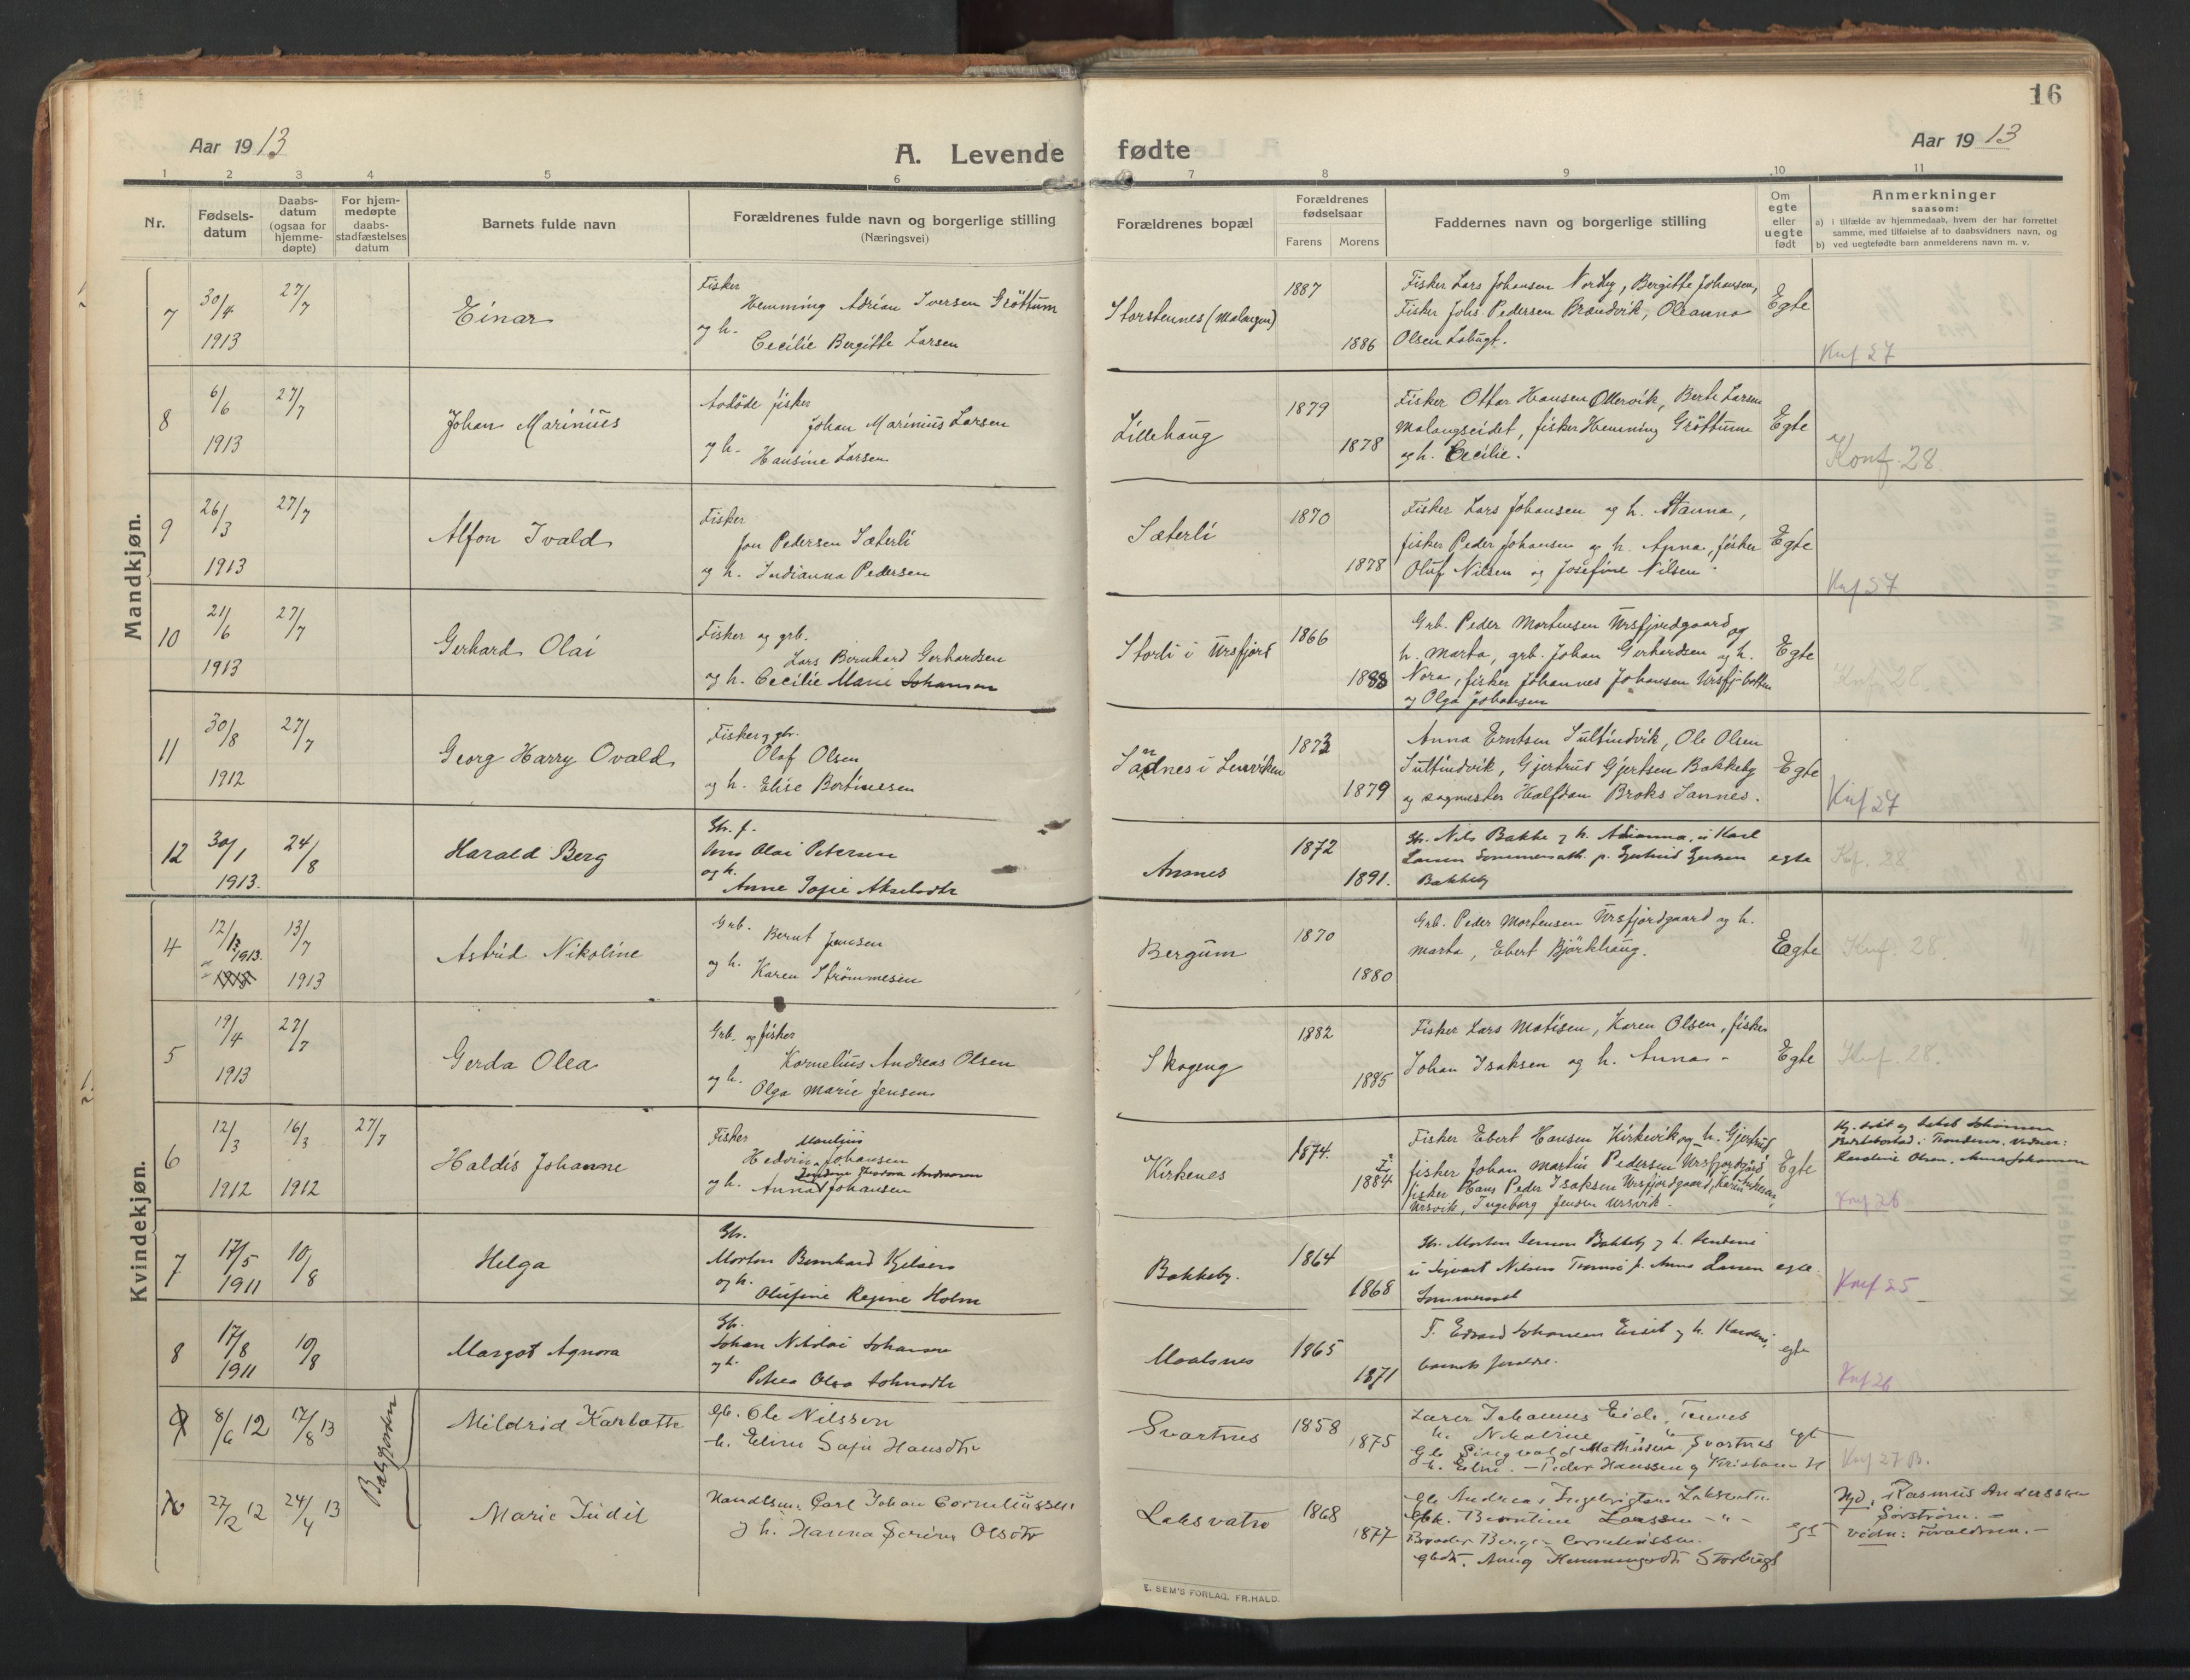 16
Aar 1913
A. Levende fødte
Aar 1913
1 2 3 4 5 6 7 8 9 10 11
Nr.
Fødsels-
datum
Daabs-
datum
(ogsaa for
hjemme-
døpte)
For hjem-
medøpte
daabs-
stadfæstelses
datum
Barnets fulde navn
Forældrenes fulde navn og borgerlige stilling
(Næringsvei)
Forældrenes bopæl
Forældrenes
fødselsaar
Farens Morens
Faddernes navn og borgerlige stilling
Om
egte
eller
uegte
født
Anmerkninger
saasom:
a) i tilfælde av hjemmedaab, hvem der har forrettet
samme, med tilføielse af to daabsvidners navn, og
b) ved uegtefødte barn anmelderens navn m. v.
Mandkjøn.
7
30/4
1913
27/7
Einar
Fisker
Hemming Adrian Iversen Gröttum
og h.
Cecilie Bergitte Larsen
Storstennes (Malangen)
1887
1886
Fisker Lars Johansen Nordby, Bergitte Johansen,
Fisker Johs Pedersen Brandvik, Oleanna
Olsen Løbugt.
Egte
Knf 27
8
6/6
1913
27/7
Johan Marinius
Avdöde fisker
Johan Marinius Larsen
og h.
Hansine Larsen
Lillehaug
1879
1878
Fisker Ottar Hansen Ollervik, Berte Larsen
Malangseidet, fisker Hemming Gröttum
og h. Cecilie.
Egte
Konf. 28.
9
26/3
1913
27/7
Alfon Ivald
Fisker
Jon Pedersen Sæterli
og h. Indianna Pedersen
Sæterli
1870
1878
Fisker Lars Johansen og h. Hanna,
fisker Peder Johansen og h. Anna, fisker
Oluf Nilsen og Josefine Nilsen.
Egte
Knf 27
10
21/6
1913
27/7
Gerhard Olai
Fisker og grb.
Lars Bernhard Gerhardsen
og h. Cecilie Marie Johansen
Storli i Ursfjord
1866
1888
Grb. Peder Mortensen Ursfjordgaard og
h. Marta, grb. Johan Gerhardsen og h.
Nora, fisker Johannes Johansen Ursfj.botten
og Olga Johansen
Egte
Knf. 28.
11
30/8
1912
27/7
Georg Harry Ovald
Fisker og gbr.
Olaf Olsen
og h. Elise Bertinesen
Sandnes i Lenviken
1873
1879
Anna Erntsen Sultindvik, Ole Olsen
Sultindvik, Gjertrud Gjertsen Bakkeby
og sagmester Halfdan Broks Sannes.
Egte
Knf 27
12
30/1
1913.
24/8
Harald Berg
Gbr. f.
Jens Olai Petersen
og h.
Anne Sofie Akselsdtr
Ansnes
1872
1891.
Gbr. Nils Bakke og h. Arianna, u Karl
Larsen Sommersæth. p. Gjertrud Gjertsen
Bakkeby
egte
Kf. 28
Kvindekjøn.
4
12/3 1913.
13/7
1913
Astrid Nikoline
Grb.
Bernt Jensen
og h.
Karen Strömmesen
Bergum
1870
1880
Grb. Peder Mortensen Ursfjordgaard og h.
Marta, Ebert Bjørkhaug.
Egte
Knf. 28.
5
19/4
1913
27/7
Gerda Olea
Grb. og fisker
Kornelius Andreas Olsen
og h.
Olga Marie Jensen
Skogeng
1882
1885
Fisker Lars Matisen, Karen Olsen, fisker
Johan Isaksen og h. Anna -
Egte
Knf. 28.
6
12/3
1912
16/3
1912
27/7
Haldis Johanne
Fisker
Hedvin Johansen
og h. Anna Johansen
Kirkenes
1874.
1884
Fisker Ebert Hansen Kirkevik og h. Gjertrud
fisker Johan Martin Pedersen Ursfjordgård
fisker Hans Peder Isaksen Ursfjordgaard, Karen
Ursvik, Ingeborg Jensen Ursvik.
Egte
Karoline Olsen, Anna Johansen
Knf 26
7
17/5
1911
10/8
Helga
Gbr.
Morten Bernhard Kjelsen
og h.
Olufine Regine Holm
Bakkeby.
1864
1868
Gbr. Morten Bakkeby og h.
u Sigvart Nilsen Tromsø p. Anna Larsen
Sommersæt
egte.
Knf 25
8
17/8
1911
10/8
Margot Agnora
Gbr.
Johan Nikolai Johansen
og h.
Petra Olea Johnsdtr
Maalsnes
1865
1871
F. Edvard Johansen og h. Karoline,
barnets foreldre.
egte
Knf 26
9
8/6 12
17/8 13
Balsfjorden
Mildrid Karbotte
Gb. Ole Nilssen
h. Eline Sofie Hansdtr
Svartnes
1858
1875
Lærer Johannes Eide, Tennes
h. Nikoline
Gb Singvald Mathisen, Svartnes
h. Eline. - Peder Hanssen og Kristianne H
egt
Knf 27 B.
10
27/2 12
24/4 13
Marie Judit
Handlsm. Carl Johan Corneliussen
og h. Hanna Serine Olsdtr
Laksvatn
1868
1877
Gb Andreas Ingebrigtsen Laksvatn
Gbk. Berntine Larssen - " -
Broder Berger Corneliussen.
gbdt. Anna Hemmingsdtr Storbugt
egt
Hjd. Rasmus Anderssen
Sørstrøm. -
vidn: Forældrene. -
E. SEM'S FORLAG, FR.HALD.